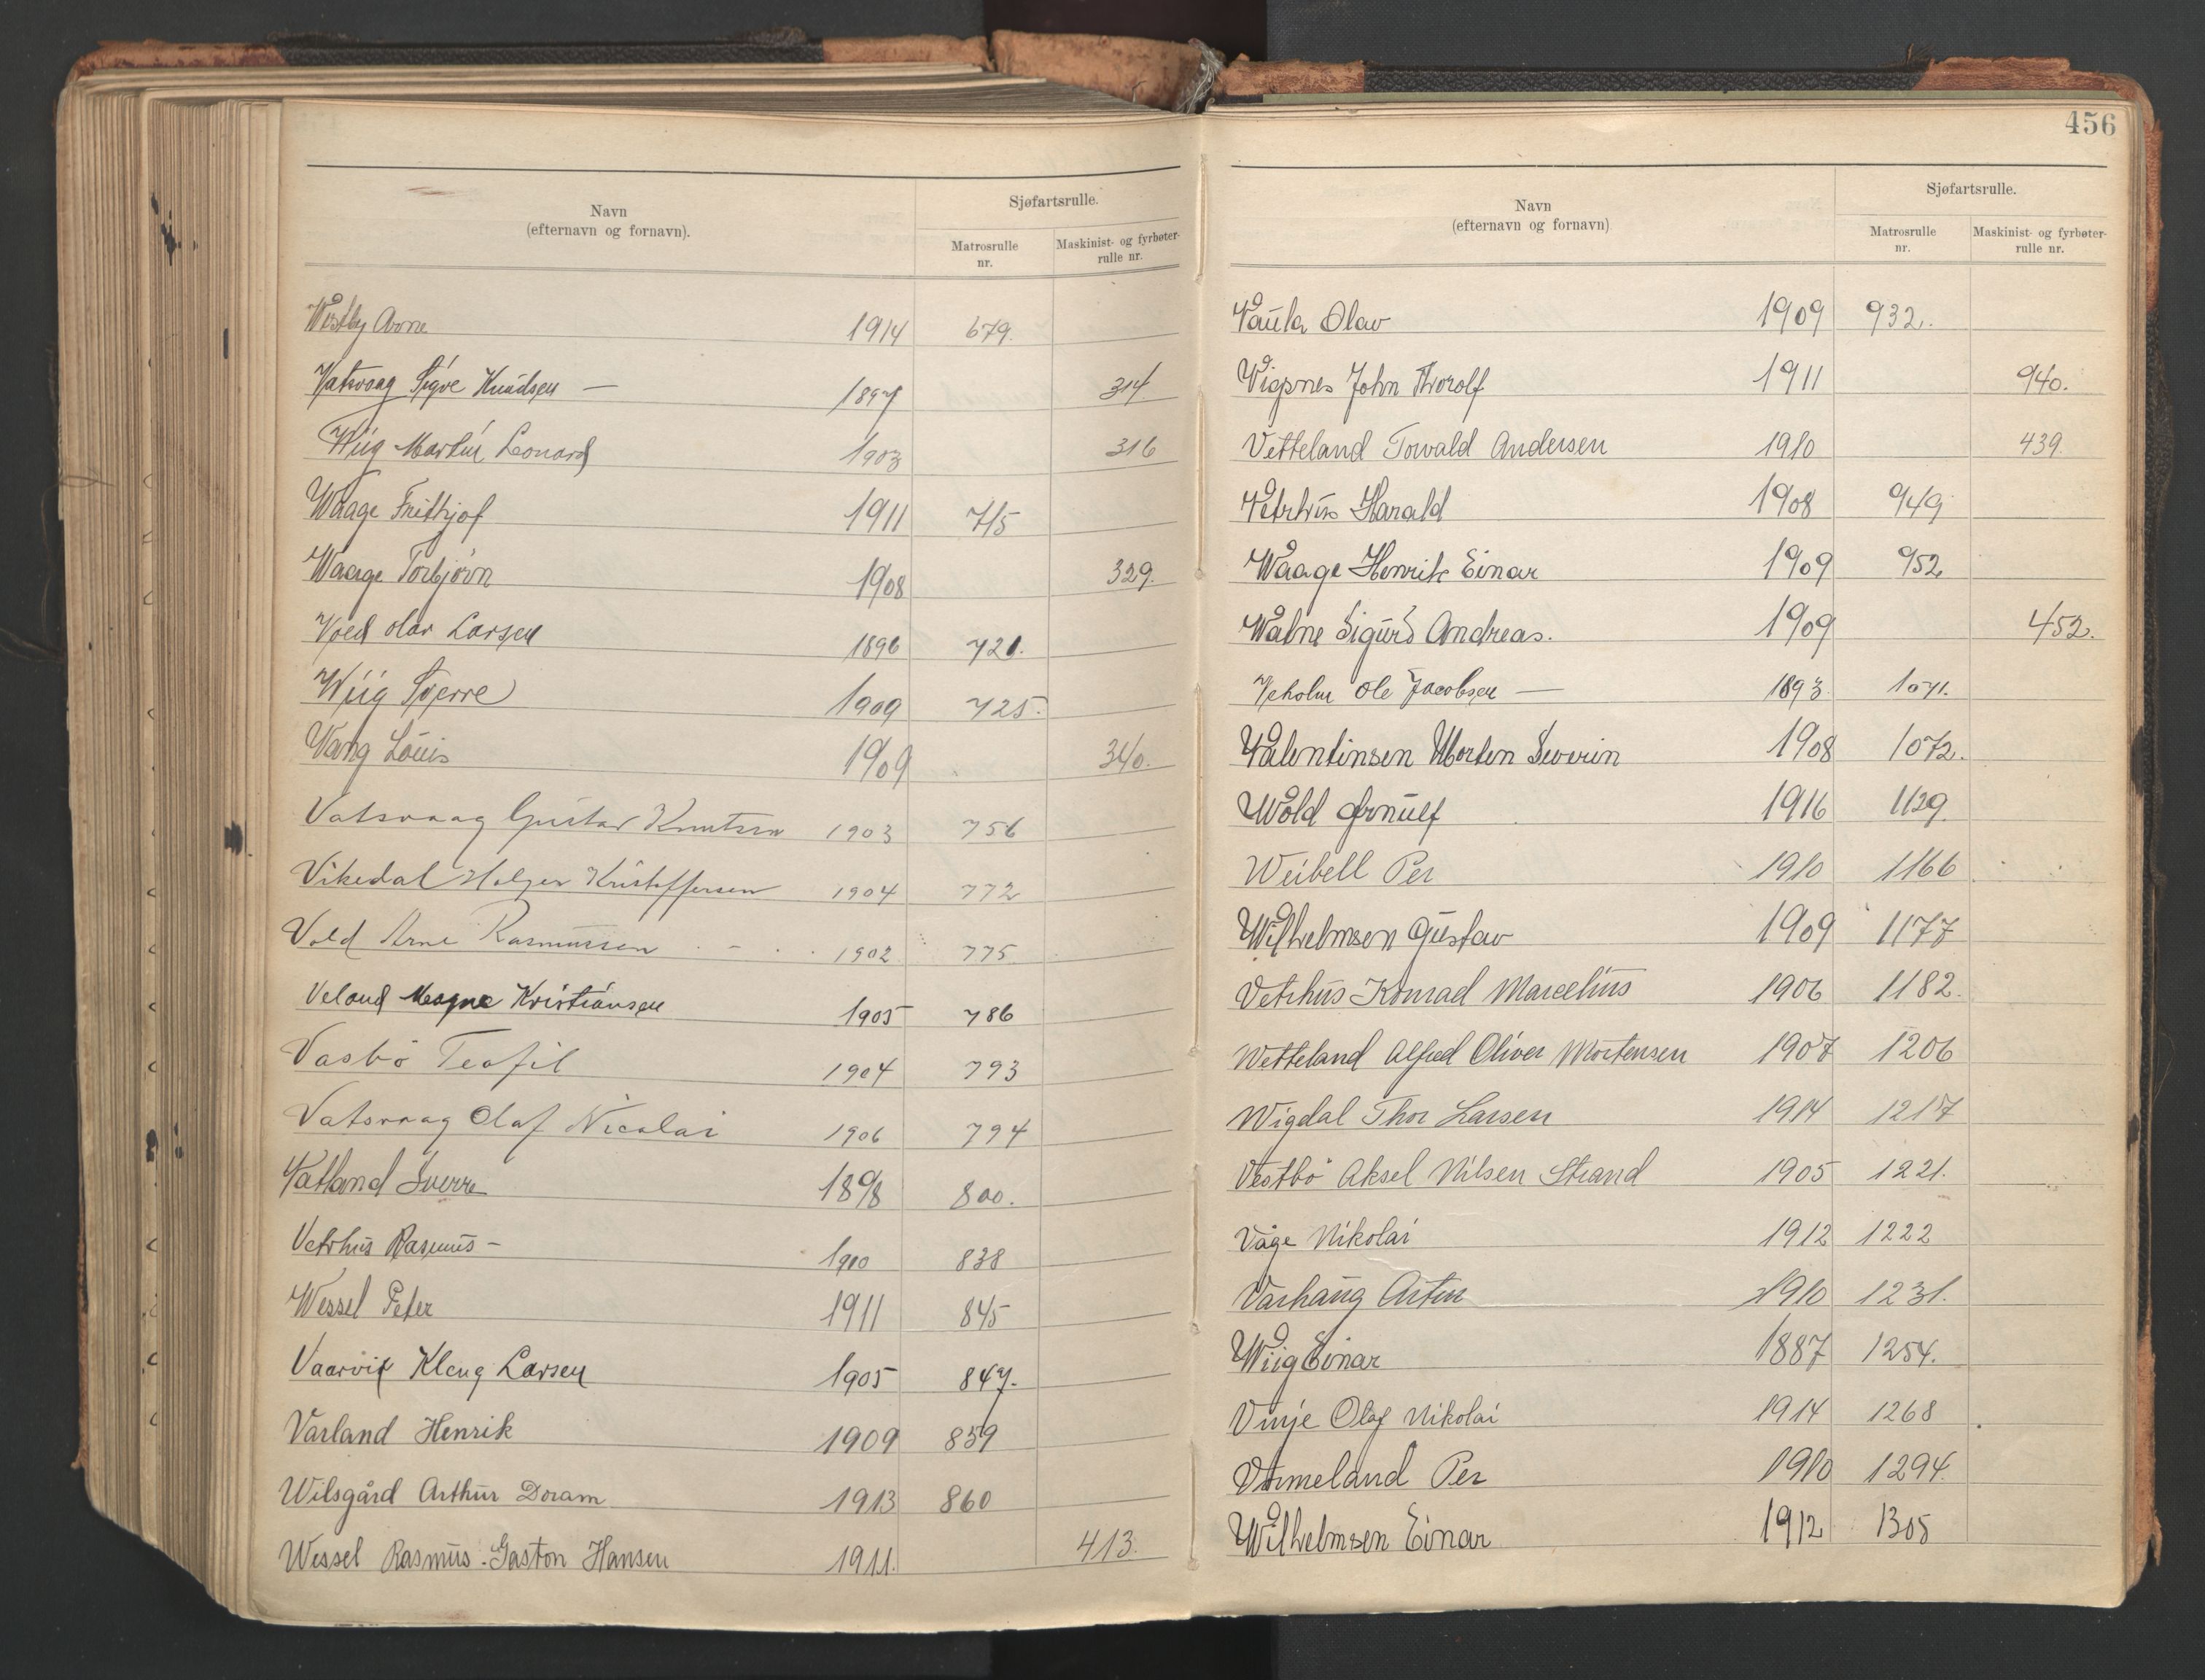 Navn
(efternavn og fornavn).
Sjøfartsrulle.
Matrosrulle nr.
Maskinist- og fyrbøter-rulle nr.
Westby Arne 1914 679.
Vatsvaag Sigve Knudsen — 1897 314
Wiig Martin Leonard 1903 316
Waage Frithjof 1911 715
Waage Torbjørn 1908 329.
Voed Olav Larsen 1896 721.
Wiig Sverre 1909 725.
Vang Louis 1909 340.
Vatsvaag Gustav Knutsen 1903 756
Vikedal Holger Kristoffersen 1904 772
Vold Arne Rasmussen 1902 775
Veland Magne Kristiansen 1905 786
Vasbö Teofil 1904 793
Vatsvaag Olaf Nicolai 1906 794
Vatland Sverre 1898 800.
Vetrhus Rasmus – 1900 838
Wessel Peter 1911 845
Vaarvik Kleng Larsen 1905 847.
Varland Henrik 1909 859
Wilsgård Arthur Doram 1913 860
Wessel Rasmus Gaston Hansen 1911. 413.
456
Navn
(efternavn og fornavn)
Sjøfartsrulle.
Matrosrulle nr.
Maskinist- og fyrbøter-rulle nr.
Vaula Olav 1909 932.
Vigsnes John Thorolf 1911 940.
Vetteland Torvald Andersen 1910 439.
Vetrhus Harald 1908 949
Waage Henrik Einar 1909 952
Walne Sigurd Andreas. 1909 452.
Veholm Ole Jacobsen — 1893 1071.
Valentinsen Morten Severin 1908 1072.
Wold Ørnulf 1916 1129.
Weibell Per 1910 1166
Wilhelmsen Gustav 1909 1177
Vetrhus Konrad Marcelius 1906 1182.
Wetteland Alfred Oliver Mortensen 1907 1206
Wigdal Thor Larsen 1914 1217
Vestbö Aksel Nilsen Strand 1905 1221.
Våge Nikolai 1912 1222
Varhaug Arten 1910 1231.
Wiig Einar 1887 1254.
Vinje Olaf Nikolai 1914 1268
Vormeland Per 1910 1294.
Wilhelmsen Einar 1912 1305